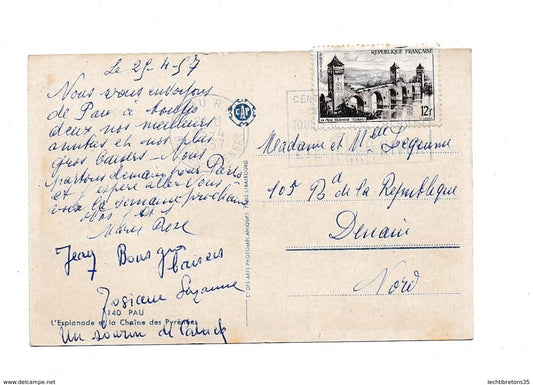 Le 29-4-57
Nous vous envoyons
de Pau, à toutes
deux nos meilleures
amitiés et nos plus
gros baisers. Nous
partons demain pour Paris
et j'espère aller vous
voir la semaine prochaine
Marie Rose
Jean Bons gros
baisers
Josiane Suzanne
Un sourire de Patrick
140 PAU
L'Esplanade et la Chaîne des Pyrénées
CAP
REPUBLIQUE FRANÇAISE
Le Pont Valentré - Cahors
12F
Madame et Melle Lequenne
105 Bd de la République
Denain
Nord
lechtibretons35
www.delcampe.net